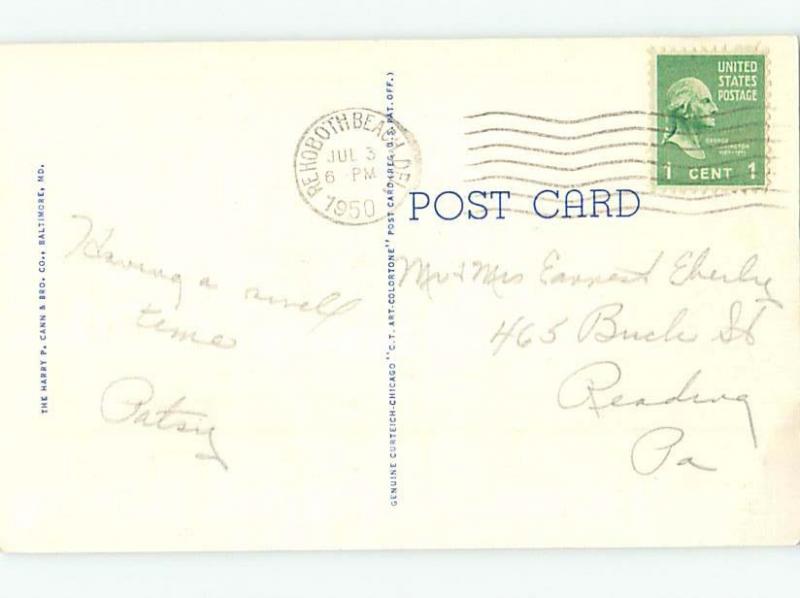 THE HARRY P. CANN & BRO. CO., BALTIMORE, MD.
Having a swell
time
Patsy
GENUINE CURTEICH-CHICAGO "C.T. ART-COLORTONE" POST CARD (REG. U.S. PAT. OFF.)
REHOBOTH BEACH, DEL
JUL 3
6 - PM
1950
UNITED
STATES
POSTAGE
GEORGE
WASHINGTON
1 CENT 1
POST CARD
Mr & Mrs Earnest Eberly
465 Buch St
Reading
Pa